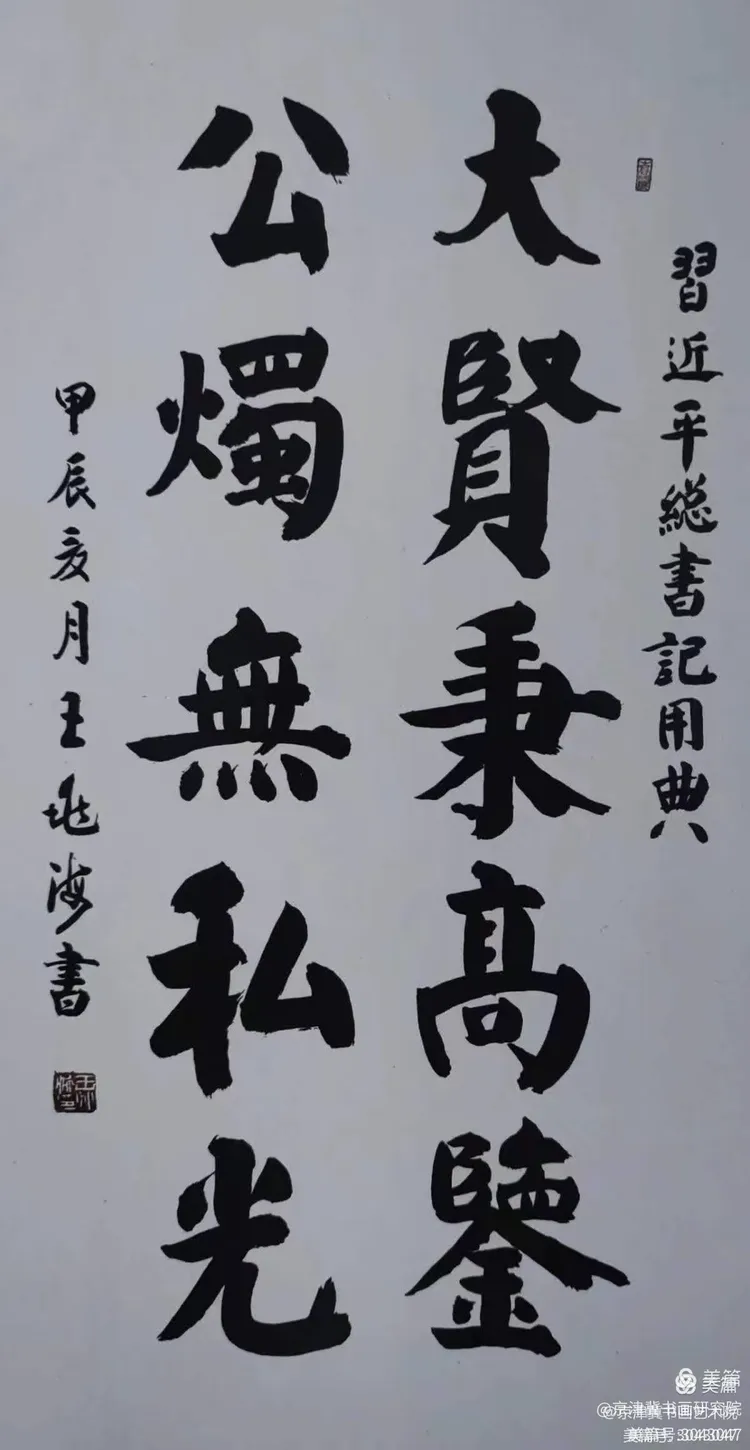 習近平緫書記用典
大賢秉高鑒
公燭無私光
甲辰月王海書
美篇
@京津冀书画院
美篇号